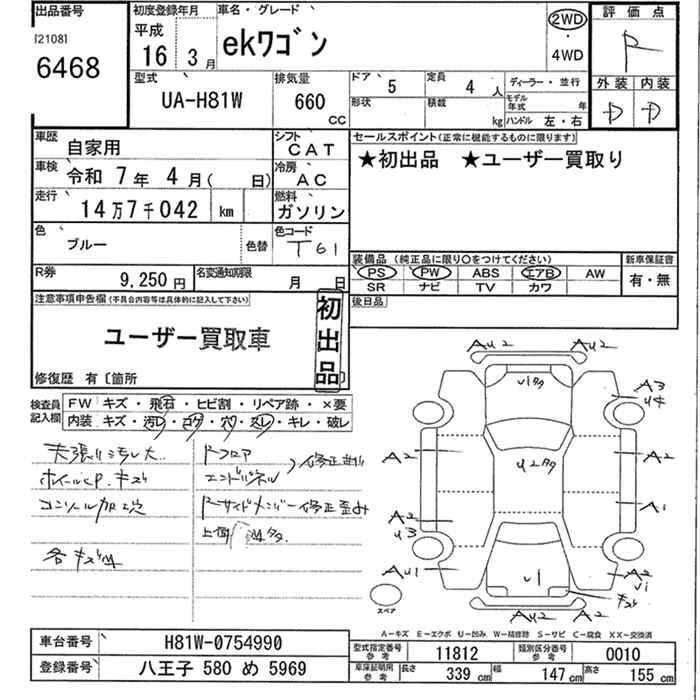 出品番号
[2108]
6468
初度登録年月
平成
16 3月
車名・グレード
ekワゴン
2WD
・
4WD
評価点
R
外装 内装
D D
型式
UA-H81W
排気量
660 CC
ドア
5
定員
4 人
形状
積載
kg
ディーラー・並行
モデル年式 年
ハンドル 左・右
車歴
自家用
シフト
CAT
車検
令和 7年 4月( 日)
冷房
AC
走行
14万7千042 km
燃料
ガソリン
色
ブルー
色替
色コード
T61
R券
9,250円
名変通知期限
月 日
セールスポイント(正常に機能するものに限ります)
★初出品 ★ユーザー買取り
装備品 (純正品に限り○をつけてください)
PS PW ABS エアB AW
SR ナビ TV カワ
新車保証書
有・無
後日品
注意事項申告欄(不具合内容等は具体的に記入して下さい)
ユーザー買取車
初出品
修復歴 有〔箇所 〕
検査員記入欄
FW キズ・飛石・ヒビ割・リペア跡・×要
内装 キズ・汚レ・コゲ・穴・スレ・キレ・破レ
天張り汚レ大
ホイールCP.キズ
コンソール加工穴
各キズM
Rフロア
エンドパネル
Rサイドメンバー修正歪み
上面
AU2 AU2
A3
U4
A2
A2
A2
U3
A1
AU1
U1
A2
U1
キズ
AU2 A2
スペア
A-キズ E-エクボ U-凹み W-補修跡 S-サビ C-腐食 XX-交換済
車台番号
H81W-0754990
登録番号
八王子 580 め 5969
型式指定番号
参考
11812
類別区分番号
参考
0010
車庫証明用
参考
長さ 339 cm
幅 147 cm
高さ 155 cm